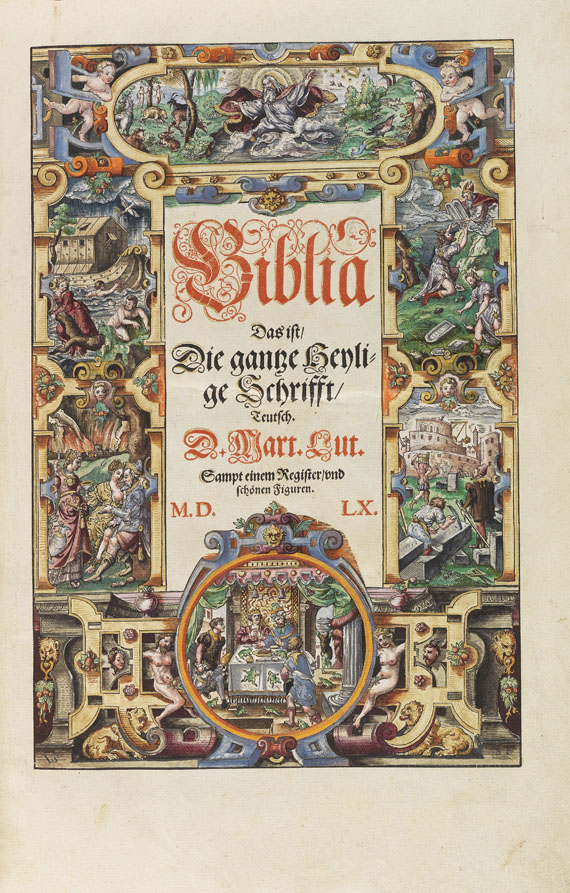 Biblia
Das ist/
Die gantze Heyli-
ge Schrifft/
Teutsch.
D. Mart. Lut.
Sampt einem Register/vnd
schönen Figuren.
M.D. LX.